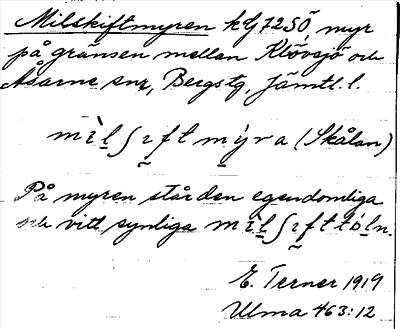 Milskiftmyren kG7250, myr
på gränsen mellan Klövsjö och
Åsarne snr, Bergs tg, Jämtl. l.
mìḷʃı̰ftmýra (Skålan)
På myren står den egendomliga
och vitt synliga mìḷʃı̰fttòḷn.
E. Terner 1919
Ulma 463:12